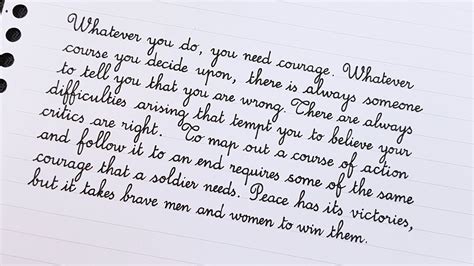 Whatever you do, you need courage. Whatever
course you decide upon, there is always someone
to tell you that you are wrong. There are always
difficulties arising that tempt you to believe your
critics are right. To map out a course of action
and follow it to an end requires some of the same
courage that a soldier needs. Peace has its victories,
but it takes brave men and women to win them.